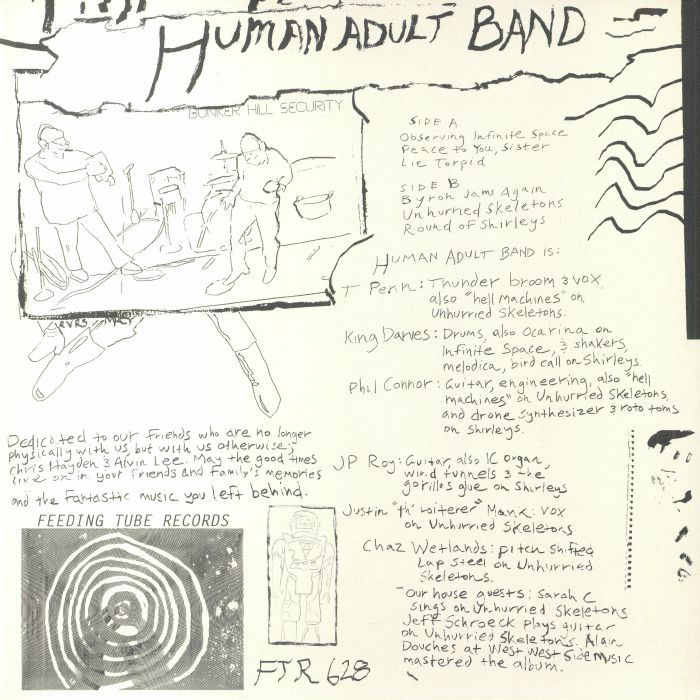 HUMAN ADULT BAND
BUNKER HILL SECURITY
SIDE A
Observing Infinite Space
Peace to You, Sister
Lie Torpid
SIDE B
Byron Jams Again
Unhurried Skeletons
Round of Shirleys
HUMAN ADULT BAND is:
T Penn: Thunder broom & vox,
also "hell machines" on
Unhurried Skeletons.
King Darves: Drums, also Ocarina on
Infinite Space, & shakers,
melodica, bird call on Shirleys.
Phil Connor: Guitar, engineering, also "hell
machines" on Unhurried Skeletons
and drone synthesizer & roto toms
on Shirleys.
JP Roy: Guitar, also IC organ,
wind tunnels & the
gorillos glue on Shirleys
Justin "th' loiterer" Monk: vox
on Unhurried Skeletons
Chaz Wetlands: pitch shifted
Lap Steel on Unhurried
Skeletons.
our house guests: Sarah C
sings on Unhurried Skeletons
Jeff Schroeck plays guitar
on Unhurried Skeletons. Alan
Douches at West West Side Music
mastered the album.
RVRS
Dedicated to our friends who are no longer
physically with us, but with us otherwise;
Chris Hayden & Alvin Lee. May the good times
live on in your friends and family's memories
and the fantastic music you left behind.
FEEDING TUBE RECORDS
FTR 628